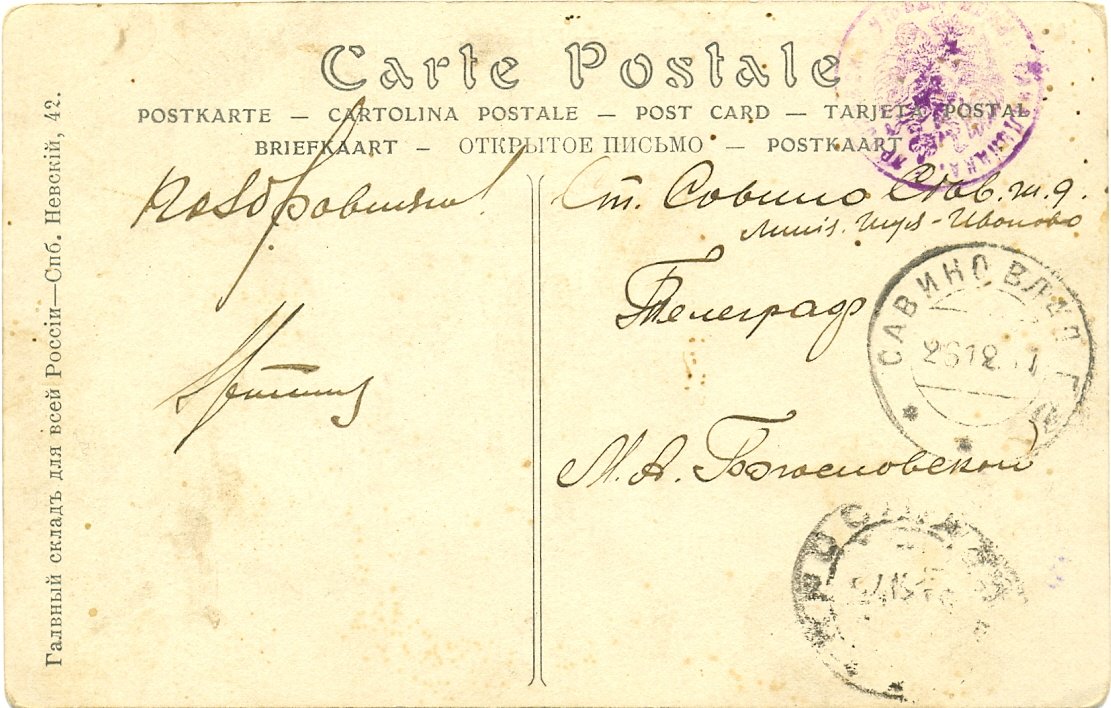 Carte Postale
POSTKARTE — CARTOLINA POSTALE — POST CARD — TARJETA POSTAL
BRIEFKAART — ОТКРЫТОЕ ПИСЬМО — POSTKAART
Галвный складъ для всей Россіи—Спб. Невскій, 42.
Поздравляю!
Ст. Савино Сѣв. ж. д.
линія. Шуя-Иваново
Телеграф
М. А. Богословской
САВИНО ВЛАД. Г.
26 12 11